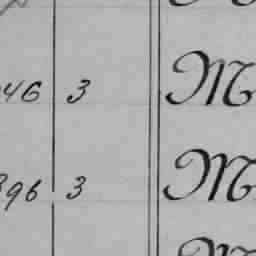 46 3 M
396 3 M